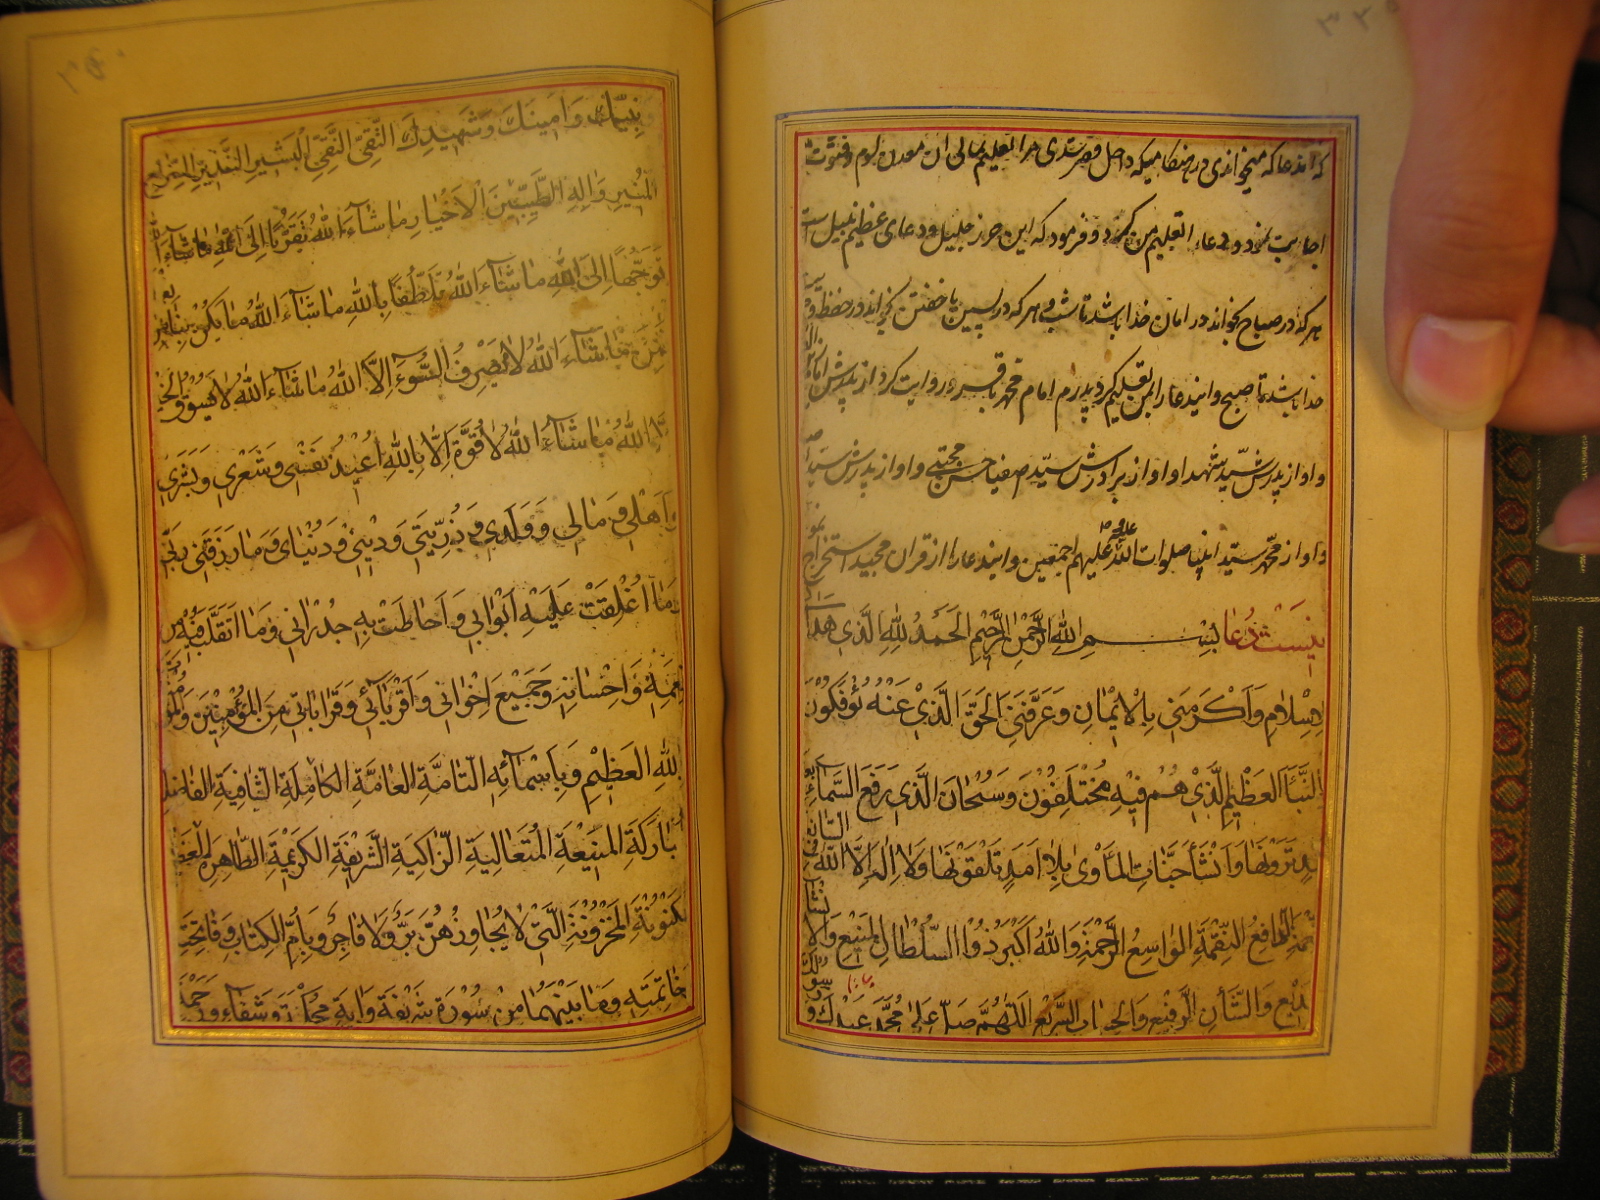 که اندعا که میخواندی در هنکامیکه داخل قصر شدی مرا تعلیم
اجابت نمود و دعاء را تعلیم من کرد و فرمود که این حرز جلیل و دعای عظیم نبیل است
هر که در صباح بخواند در امان خدا باشد تا شب و هر که در پسین تا خفتن بخواند در حفظ
خدا باشد تا صبح و ایندعا را بمن تعلیم کرد پدرم امام محمد باقر و روایت کرد از پدرش
و او از پدرش سید شهدا و او از برادرش سید صفیا حسن مجتبی و او از پدرش
و او از محمد سید انبیا صلوات الله علیهم اجمعین و ایندعا را از قران مجید استخراج
اینست دعا بِسْمِ اللهِ الرَّحْمٰنِ الرَّحِیْمِ الحَمْدُ لِلّٰهِ الَّذِی هَدَا
لِلاِسْلَامِ وَاَکْرَمَنِی بِالْاِیْمٰانِ وَعَرَّفَنِیَ الحَقَّ الَّذِیْ عَنْهُ یُؤْفَکُوْنَ
النَّبَأَ العَظِیْمَ الَّذِیْ هُمْ فِیْهِ مُخْتَلِفُوْنَ وَسُبْحَانَ الَّذِی رَفَعَ السَّمٰاءَ
تَرَوْنَهَا وَاَنْشَأَ جَنَّاتِ المَأْوٰی بِلٰا اَمَدٍ تَلْقَوْنَهَا وَلَا اِلٰهَ اِلَّا اللّٰهُ
الدَّافِعُ النِّقْمَةِ الوٰاسِعُ الرَّحْمَةِ وَاللّٰهُ اَکْبَرُ ذُوْا السُّلْطٰانِ المَنِیْعِ
وَالشَّأْنِ الرَّفِیْعِ وَالحِسَابِ السَّرِیْعِ اَللّٰهُمَّ صَلِّ عَلٰی مُحَمَّدٍ عَبْدِكَ وَ
نَبِیِّكَ وَاَمِیْنِكَ وَشَهِیْدِكَ التَّقِیِّ النَّقِیِّ البَشِیْرِ النَّذِیْرِ السِّرَاجِ
المُنِیْرِ وَاٰلِهِ الطَّیِّبِیْنَ الْاَخْیٰارِ مٰا شَاءَ اللّٰهُ تَقَرُّبًا اِلَی اللّٰهِ مَا شَاءَ اللّٰهُ
تَوَجُّهًا اِلَی اللّٰهِ مٰا شَاءَ اللّٰهُ تَلَطُّفًا بِاللّٰهِ مٰا شَاءَ اللّٰهُ مٰا یَکُنْ
مٰا شَاءَ اللّٰهُ لَا یَصْرِفُ السُّوْءَ اِلَّا اللّٰهُ مٰا شَاءَ اللّٰهُ لَا یَسُوْقُ الخَیْرَ
اِلَّا اللّٰهُ مٰا شَاءَ اللّٰهُ لَا قُوَّةَ اِلَّا بِاللّٰهِ اُعِیْذُ نَفْسِی وَشَعْرِی وَبَشَرِی
وَاَهْلِی وَمٰالِی وَوَلَدِی وَذُرِّیَّتِی وَدِیْنِی وَدُنْیَایَ وَمٰا رَزَقَنِی رَبِّی
وَمٰا اُغْلِقَتْ عَلَیْهِ اَبْوَابِی وَاَحَاطَتْ بِهِ جُدْرَانِی وَمَا اَتَقَلَّبُ فِیْهِ مِنْ
نِعَمِهِ وَاِحْسَانِهِ وَجَمِیْعَ اِخْوَانِی وَاَقْرِبَائِی وَقَرَابَاتِی مِنَ المُؤْمِنِیْنَ
بِاللّٰهِ العَظِیْمِ وَبِاَسْمَائِهِ التَّامَّةِ العَامَّةِ الکَامِلَةِ الشَّافِیَةِ الفَاضِلَةِ
المُبٰارَکَةِ المَنِیْعَةِ المُتَعَالِیَةِ الزَّاکِیَةِ الشَّرِیْفَةِ الکَرِیْمَةِ الطَّاهِرَةِ
المَکْنُوْنَةِ المَخْزُوْنَةِ الَّتِی لَا یُجَاوِزُهُنَّ بَرٌّ وَلَا فَاجِرٌ وَبِاُمِّ الکِتَابِ وَفَاتِحَتِهِ
وَخَاتِمَتِهِ وَمٰا بَیْنَهُمٰا مِنْ سُوْرَةٍ شَرِیْفَةٍ وَاٰیَةٍ مُحْکَمَةٍ وَشِفَاءٍ وَرَحْمَةٍ